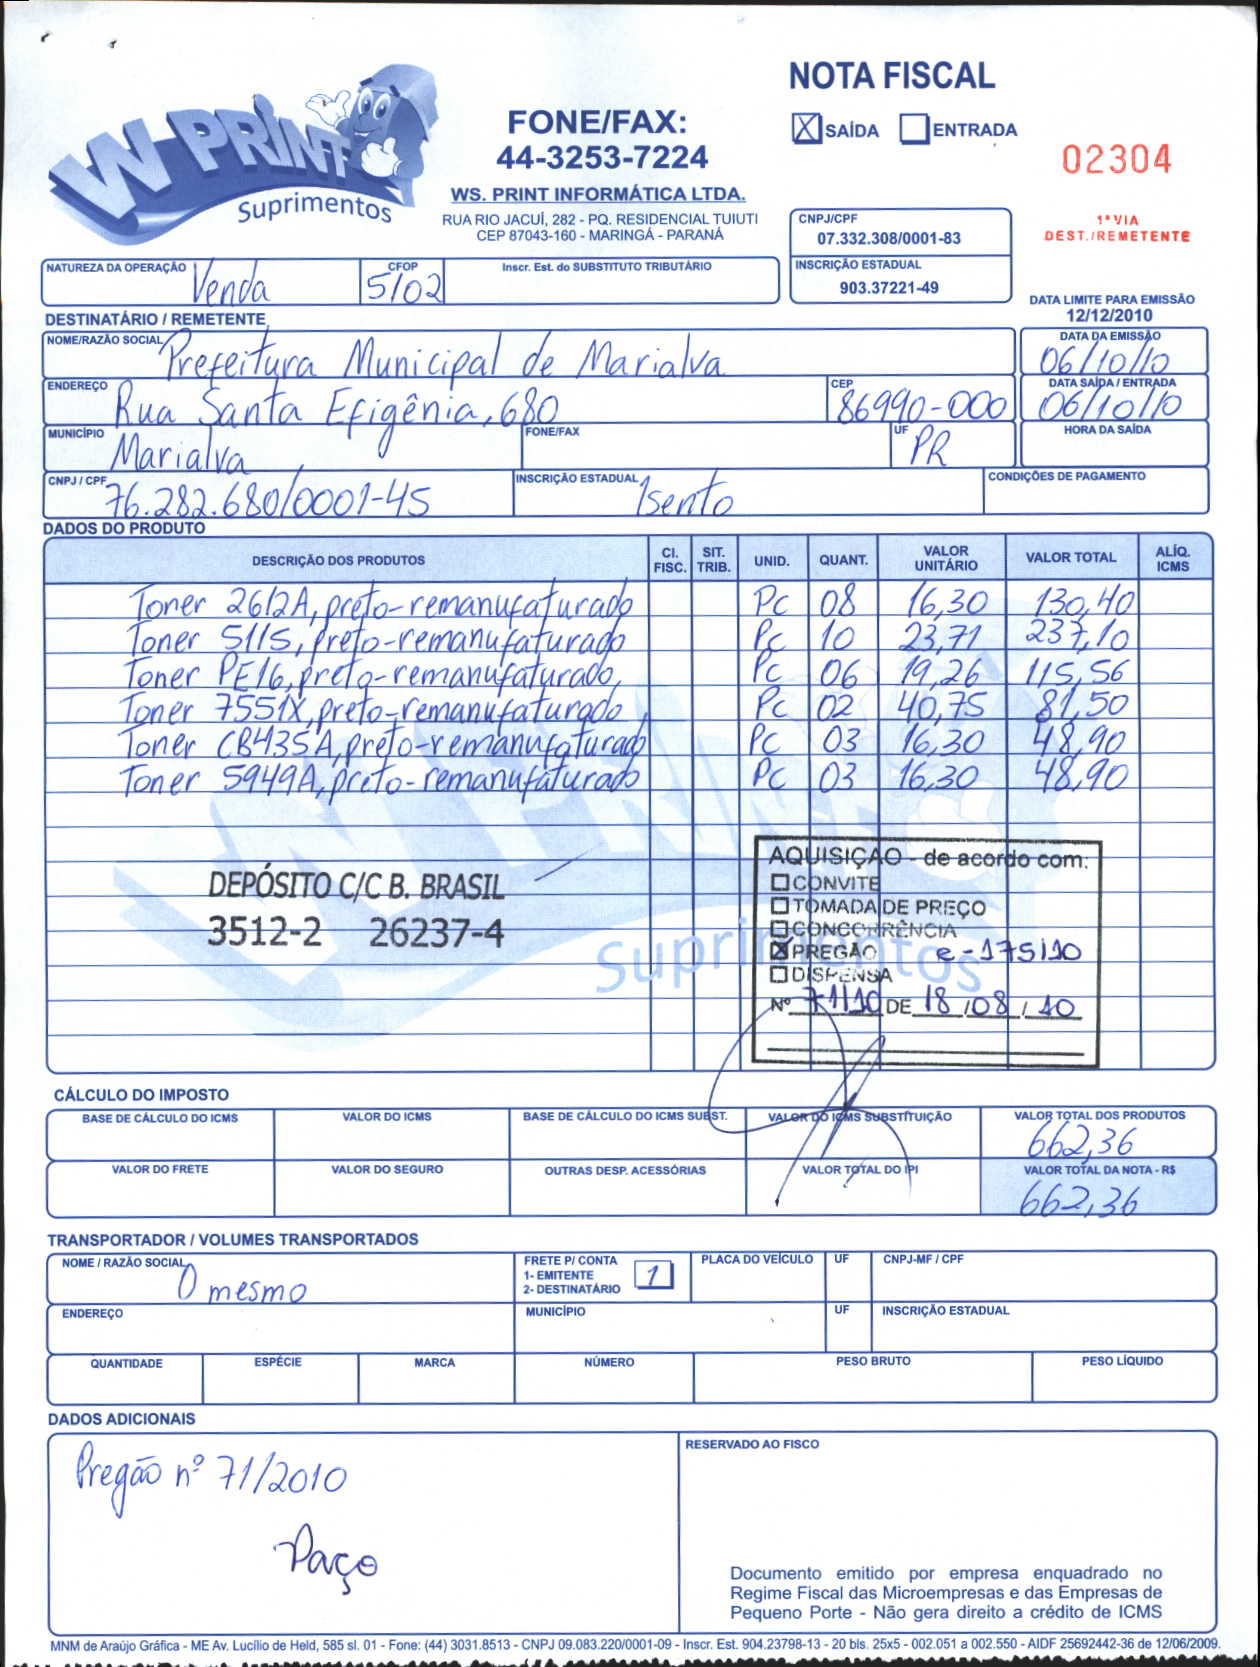 W PRINT
Suprimentos
FONE/FAX:
44-3253-7224
WS. PRINT INFORMÁTICA LTDA.
RUA RIO JACUÍ, 282 - PQ. RESIDENCIAL TUIUTI
CEP 87043-160 - MARINGÁ - PARANÁ
NOTA FISCAL
X SAÍDA ENTRADA
02304
1ª VIA
DEST./REMETENTE
CNPJ/CPF
07.332.308/0001-83
INSCRIÇÃO ESTADUAL
903.37221-49
DATA LIMITE PARA EMISSÃO
12/12/2010
NATUREZA DA OPERAÇÃO Venda
CFOP 5102
Inscr. Est. do SUBSTITUTO TRIBUTÁRIO
DESTINATÁRIO / REMETENTE
NOME/RAZÃO SOCIAL Prefeitura Municipal de Marialva
DATA DA EMISSÃO 06/10/10
ENDEREÇO Rua Santa Efigênia, 680
CEP 86990-000
DATA SAÍDA / ENTRADA 06/10/10
MUNICÍPIO Marialva
FONE/FAX
UF PR
HORA DA SAÍDA
CNPJ / CPF 76.282.680/0001-45
INSCRIÇÃO ESTADUAL Isento
CONDIÇÕES DE PAGAMENTO
DADOS DO PRODUTO
DESCRIÇÃO DOS PRODUTOS CI. FISC. SIT. TRIB. UNID. QUANT. VALOR UNITÁRIO VALOR TOTAL ALÍQ. ICMS
Toner 2612A, preto-remanufaturado Pc 08 16,30 130,40
Toner 5115, preto-remanufaturado Pc 10 23,71 237,10
Toner PE16, preto-remanufaturado Pc 06 19,26 115,56
Toner 7551X, preto-remanufaturado Pc 02 40,75 81,50
Toner CB435A, preto-remanufaturado Pc 03 16,30 48,90
Toner 5949A, preto-remanufaturado Pc 03 16,30 48,90
DEPÓSITO C/C B. BRASIL
3512-2 26237-4
W PRINT
Suprimentos
AQUISIÇÃO - de acordo com:
CONVITE
TOMADA DE PREÇO
CONCORRÊNCIA
X PREGÃO e-175/10
DISPENSA
Nº 71/10 DE 18/08/10
CÁLCULO DO IMPOSTO
BASE DE CÁLCULO DO ICMS VALOR DO ICMS BASE DE CÁLCULO DO ICMS SUBST. VALOR DO ICMS SUBSTITUIÇÃO VALOR TOTAL DOS PRODUTOS
662,36
VALOR DO FRETE VALOR DO SEGURO OUTRAS DESP. ACESSÓRIAS VALOR TOTAL DO IPI VALOR TOTAL DA NOTA - R$
662,36
TRANSPORTADOR / VOLUMES TRANSPORTADOS
NOME / RAZÃO SOCIAL O mesmo
FRETE P/ CONTA
1- EMITENTE
2- DESTINATÁRIO
1
PLACA DO VEÍCULO UF CNPJ-MF / CPF
ENDEREÇO MUNICÍPIO UF INSCRIÇÃO ESTADUAL
QUANTIDADE ESPÉCIE MARCA NÚMERO PESO BRUTO PESO LÍQUIDO
DADOS ADICIONAIS
Pregão nº 71/2010
Paço
RESERVADO AO FISCO
Documento emitido por empresa enquadrado no
Regime Fiscal das Microempresas e das Empresas de
Pequeno Porte - Não gera direito a crédito de ICMS
MNM de Araújo Gráfica - ME Av. Lucílio de Held, 585 sl. 01 - Fone: (44) 3031.8513 - CNPJ 09.083.220/0001-09 - Inscr. Est. 904.23798-13 - 20 bls. 25x5 - 002.051 a 002.550 - AIDF 25692442-36 de 12/06/2009.